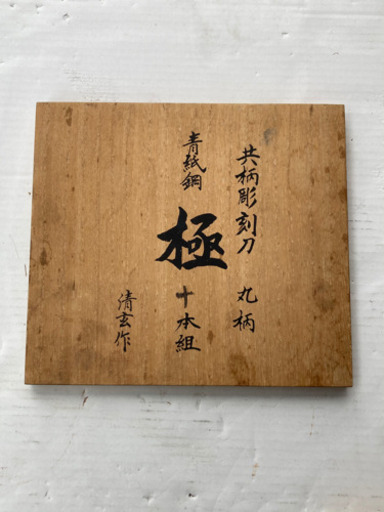 共柄彫刻刀 丸柄
青紙鋼
極
十本組
清玄作